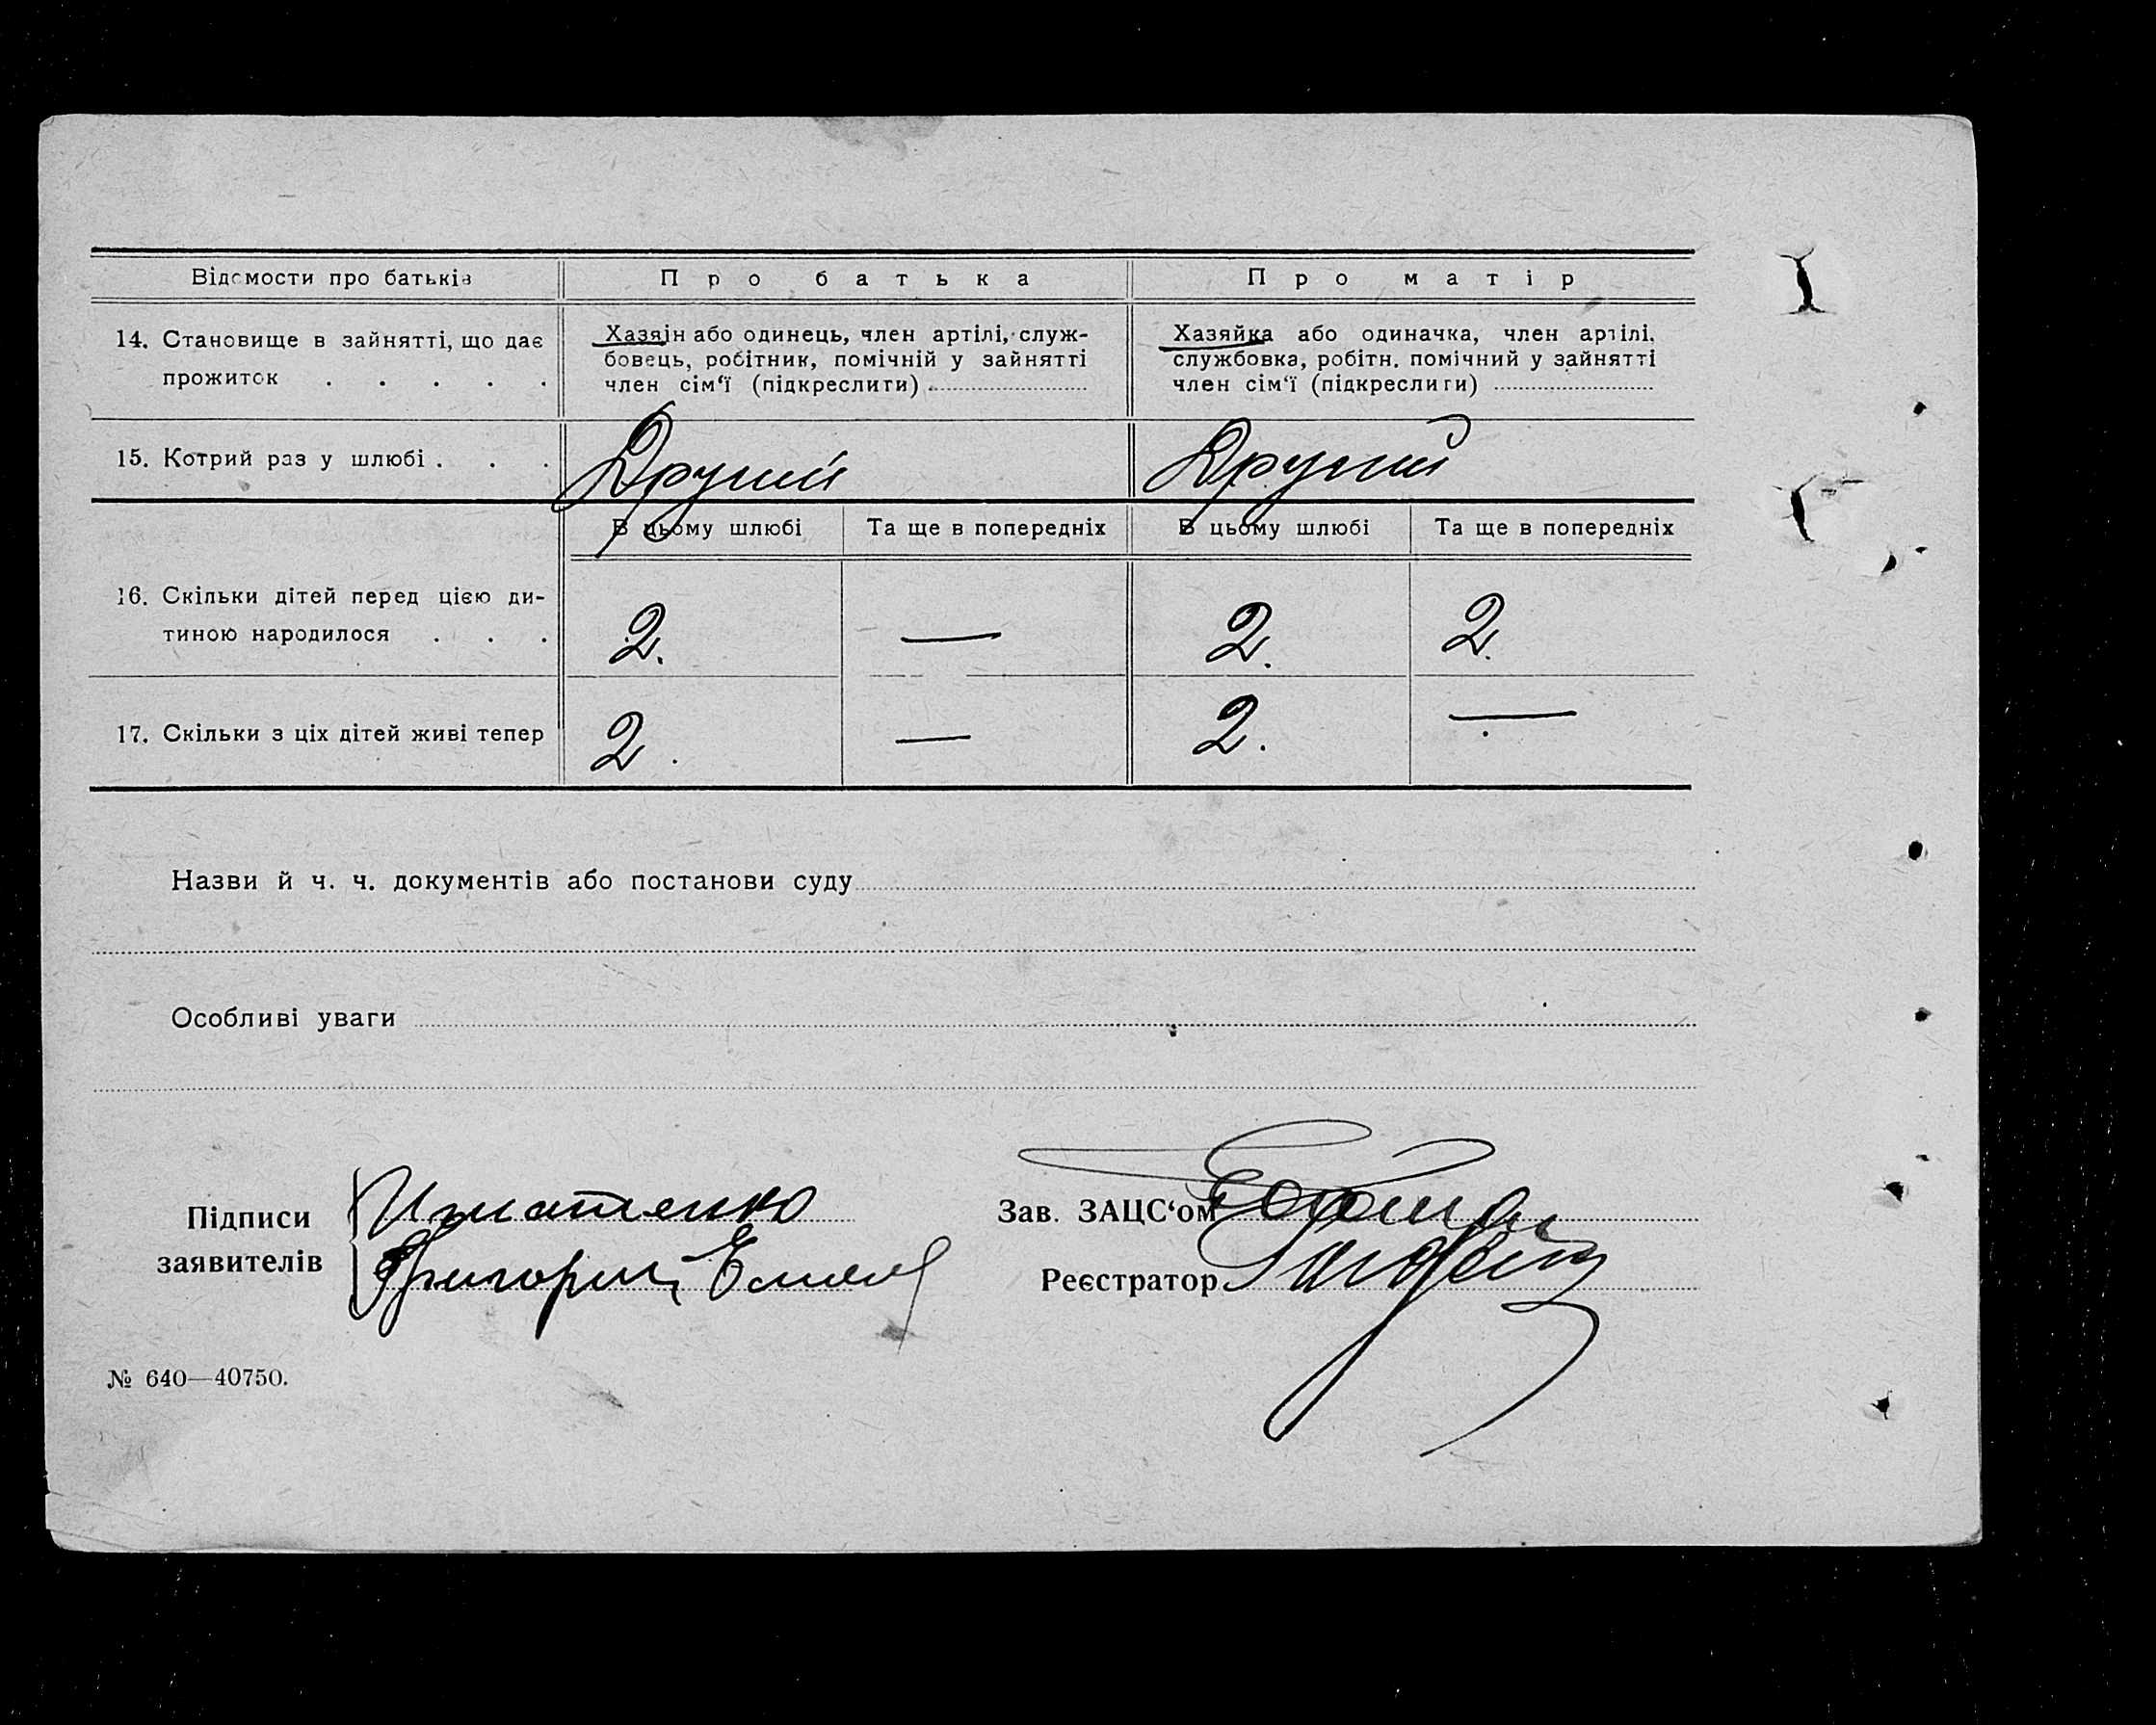 Відомости про батьків
Про батька
Про матір
14. Становище в зайнятті, що дає
прожиток . . . . .
Хазяін або одинець, член артілі, служ-
бовець, робітник, помічній у зайнятті
член сім‘ї (підкреслити)
Хазяйка або одиначка, член артілі,
службовка, робітн. помічний у зайнятті
член сім‘ї (підкреслити)
15. Котрий раз у шлюбі . . .
Другий
Другий
В цьому шлюбі
Та ще в попередніх
В цьому шлюбі
Та ще в попередніх
16. Скільки дітей перед цією ди-
тиною народилося . . .
2. — 2. 2.
17. Скільки з ціх дітей живі тепер
2. — 2. —
Назви й ч. ч. документів або постанови суду
Особливі уваги
Підписи
заявителів
Игнатенко
Григорий
Зав. ЗАЦС‘ом
Реєстратор
№ 640—40750.